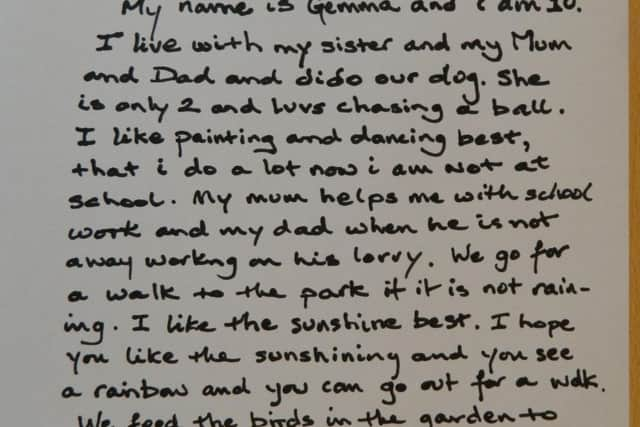 My name is Gemma and i am 10.
I live with my sister and my Mum
and Dad and dido our dog. She
is only 2 and luvs chasing a ball.
I like painting and dancing best,
that i do a lot now i am not at
school. My mum helps me with school
work and my dad when he is not
away workng on his lorry. We go for
a walk to the park if it is not rain-
ing. I like the sunshine best. I hope
you like the sunshining and you see
a rainbow and you can go out for a walk.
We feed the birds in the garden to